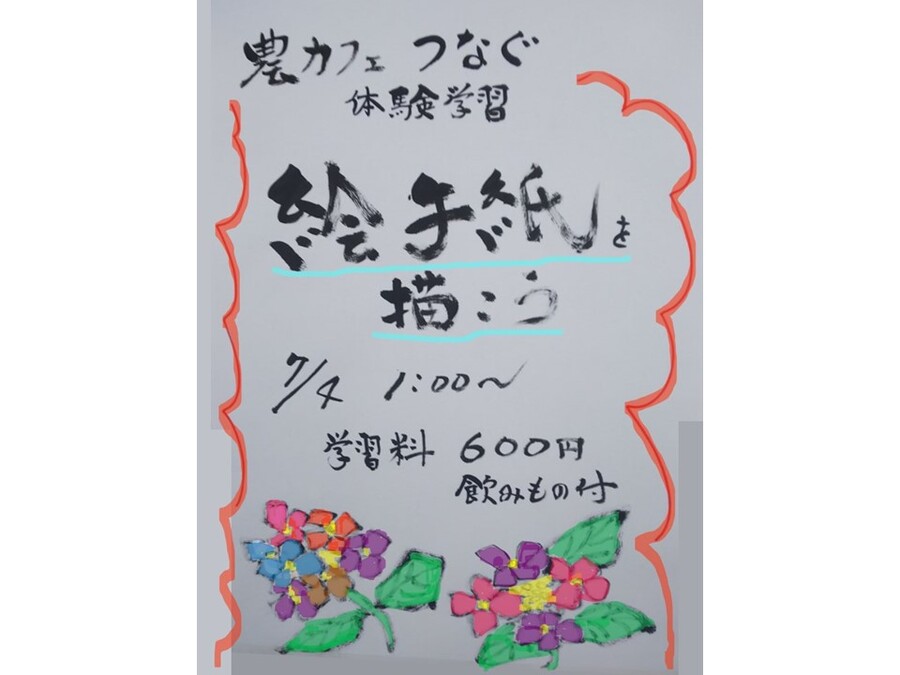 農カフェ つなぐ
体験学習
絵手紙を
描こう
7/4 1:00〜
学習料 600円
飲みもの付